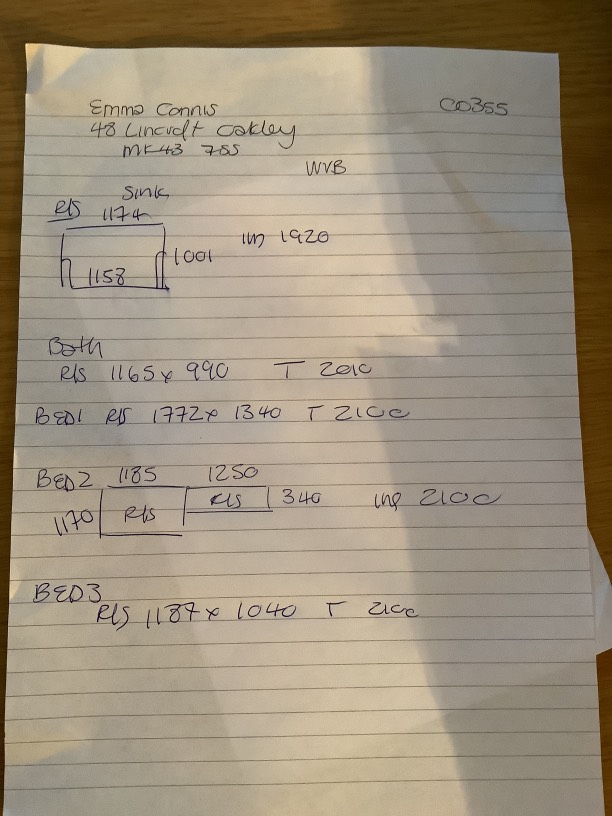 Emma Connis CO355
48 Lincroft Oakley
MK43 7SS
WVB
Sink
R/S 1174
1001 1920
1158
Bath
R/S 1165 x 990 T 2010
BED1 R/S 1772 x 1340 T 2100
BED2 1185 1250
1170 R/S R/S 340 2100
BED3
R/S 1187 x 1040 T 2100